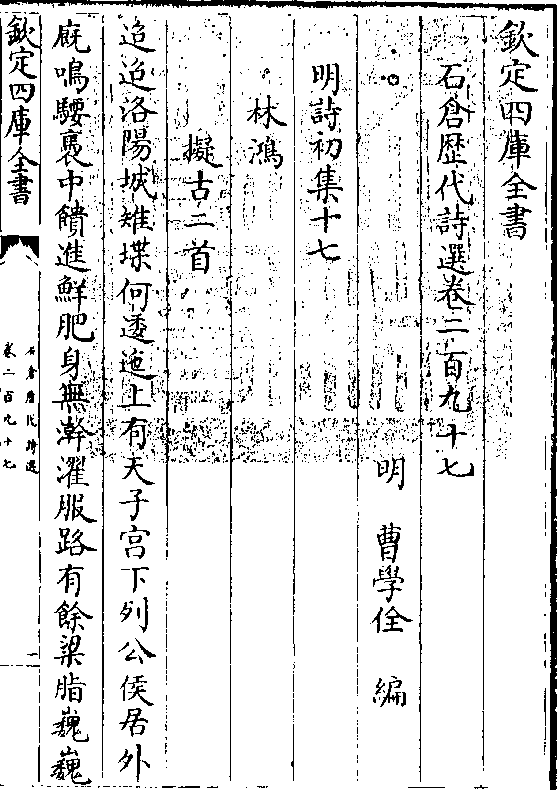 欽定四庫全書
石倉歷代詩選卷二百九十七
明 曹學佺 編
明詩初集十七
林鴻
擬古二首
迢迢洛陽城雉堞何逶迤上有天子宮下列公侯居外
廐鳴騕褭中饋進鮮肥身無澣濯服路有餘粱脂巍巍
欽定四庫全書
石倉歷代詩選
卷二百九十七
一